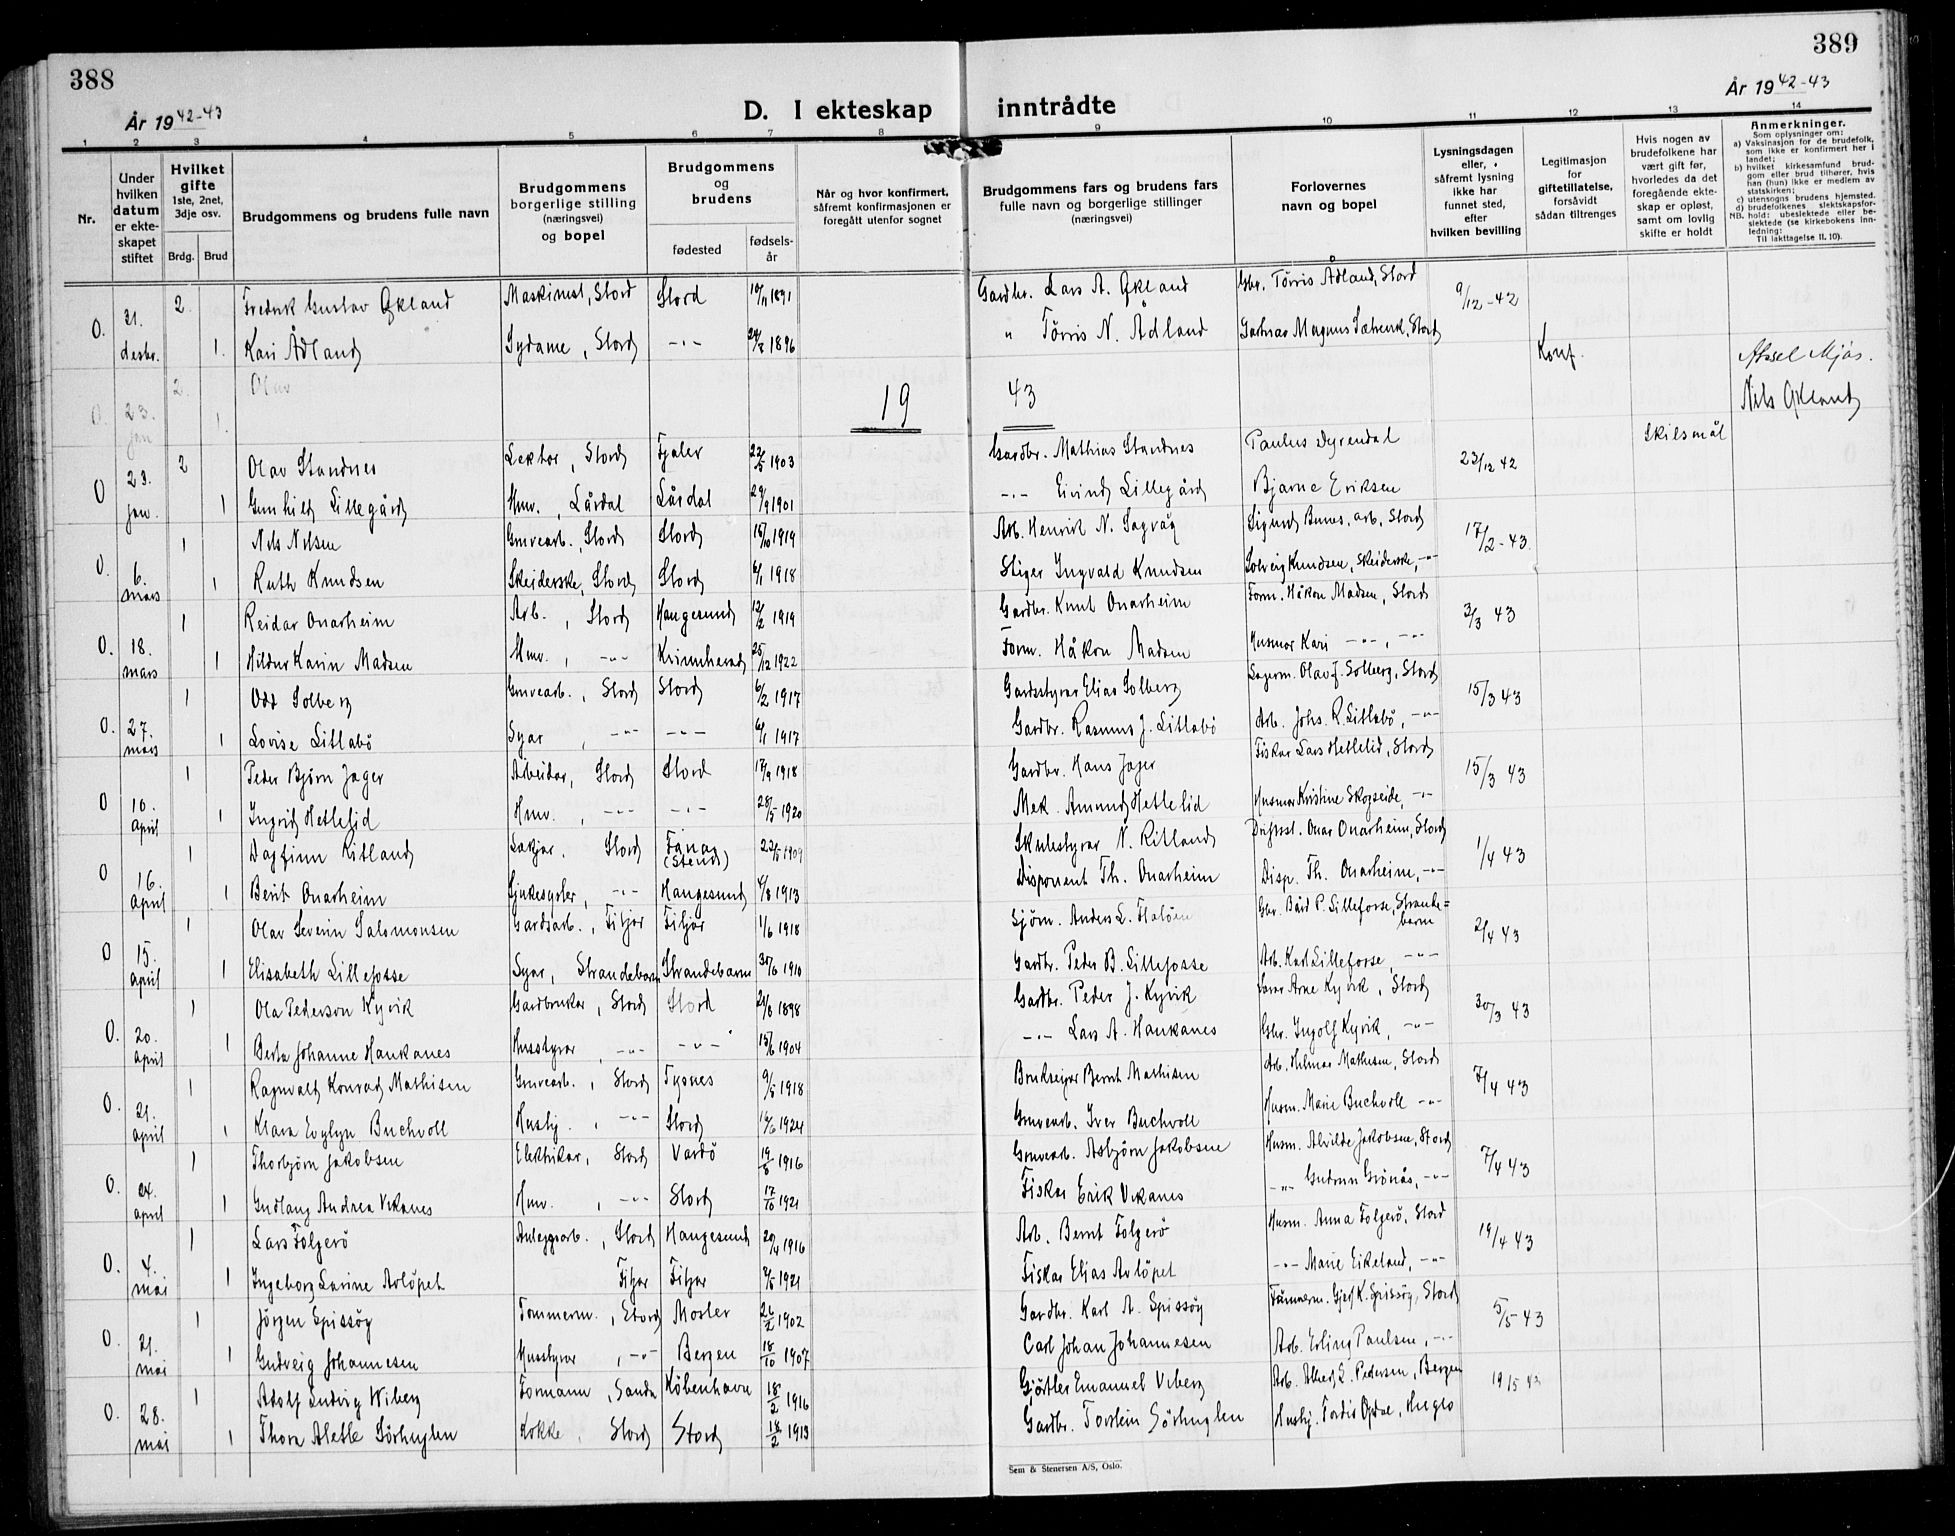 388
389
År 1942-43
D. I ekteskap inntrådte
År 1942-43
1 2 3 4 5 6 7 8 9 10 11 12 13 14
Nr.
Under hvilken datum er ekteskapet stiftet
Hvilket gifte 1ste, 2net, 3dje osv.
Brdg. Brud
Brudgommens og brudens fulle navn
Brudgommens borgerlige stilling (næringsvei) og bopel
Brudgommens og brudens
fødested
fødselsår
Når og hvor konfirmert, såfremt konfirmasjonen er foregått utenfor sognet
Brudgommens fars og brudens fars fulle navn og borgerlige stillinger (næringsvei)
Forlovernes navn og bopel
Lysningsdagen eller, såfremt lysning ikke har funnet sted, efter hvilken bevilling
Legitimasjon for giftetillatelse, forsåvidt sådan tiltrenges
Hvis nogen av brudefolkene har vært gift før, hvorledes da det foregående ekteskap er opløst, samt om lovlig skifte er holdt
Anmerkninger.
Som oplysninger om:
a) Vaksinasjon for de brudefolk, som ikke er konfirmert her i landet;
b) hvilket kirkesamfund brudgom eller brud tilhører, hvis han (hun) ikke er medlem av statskirken;
c) utensogns brudens hjemsted.
d) brudefolkenes slektskapsforhold: ubeslektede eller beslektede (se kirkebokens innledning:
NB. Til iakttagelse II, 10).
0. 31. desbr. 2. Fredrik Gustav Økland Maskinist, Stord Stord 10/11 1891 Gardbr. Lars A. Økland Gbr. Tørris Ådland, Stord 9/12-42
1. Kari Ådland Sydame, Stord -"- 1896 " Tørris N. Ådland Gartnar Magnus Sætrevik, Stord Konf. Aksel Mjøs.
0 23. jan 2. 1. Olav 19 43 Nils Økland
0 23. jan. 2 Olav Standnes Lektor, Stord Fjaler 22/5 1903 Gardbr. Mathias Standnes Paulus Dyrendal 23/12 42 Skilsmål
1 Gunhild Lillegård Hmv., Lårdal Lårdal 29/9 1901 -"- Eivind Lillegård Bjarne Eriksen
0. 6. mars 1 Nils Nilsen Gruvearb., Stord Stord 15/10 1919 Arb. Henrik N. Sagvåg Sigurd Bunes, arb, Stord 17/2-43
1 Ruth Knudsen Skeiderske, Stord Stord 6/1 1918 Stiger Ingvald Knudsen Solveig Knudsen, Skeiderske, -"-
0. 18. mars 1 Reidar Onarheim Arb., Stord Haugesund 12/2 1919 Gardbr. Knut Onarheim Form. Håkon Madsen, Stord 3/3 43
1 Hildur Karin Madsen Hmv., -"- Kvinnherad 25/12 1922 Form. Håkon Madsen Husmor Kari -"-, -"-
0. 27. mars 1 Odd Solberg Gruvearb., Stord Stord 6/2 1917 Gardsstyrar Elias Solberg Lagerm. Olav J. Solberg, Stord 15/3 43
1 Lovise Litlabø Syar, -"- -"- 6/1 1917 Gardbr. Rasmus J. Litlabø Arb. Johs. R. Litlabø, -"-
0 10. April 1 Peder Bjørn Jager Arbeidar, Stord Stord 17/9 1918 Gardbr. Hans Jager Fiskar Lars Hetlelid, Stord 15/3 43
1 Ingrid Hetlelid Hmv., -"- -"- 28/5 1920 Mek. Amund Hetlelid Husmor Kristine Skogseide, -"-
0 16. April 1 Dagfinn Ritland Stord Fana (Stend) 1909 Skulestyrar N. Ritland Driftsst. Onar Onarheim, Stord 1/4 43
1 Berit Onarheim Sjukesyster, -"- Haugesund 4/8 1913 Disponent Th. Onarheim Disp. Th. Onarheim, -"-
0 15. April 1 Olav Severin Salomonsen Gardsarb., Fitjar Fitjar 1/6 1918 Sjøm. Anders L. Gbr. Bård P. Lillefosse, Strandebarm 2/4 43
1 Elisabeth Lillefosse Syar, Strandebarm Strandebarm 30/6 1910 Gardbr. Peder B. Lillefosse Arb. Karl Lillefosse, -"-
0. 20. April 1 Ola Pederson Kyvik Gardbrukar, Stord Stord 1898 Gardbr. Peder J. Kyvik Arne Kyvik, Stord 30/3 43
1 Berta Johanne Haukanes Husstyrar, -"- -"- 15/6 1904 -"- Lars A. Haukanes Gbr. Ingolf Kyvik, -"-
0. 21. april 1 Ragnvald Konrad Mathisen Gruvearb., Stord Tysnes 9/5 1918 Brukseigar Bernt Mathisen Arb. Hilmar Mathisen, Stord 7/4 43
1 Klara Evylyn Buchvoll Hushj., -"- Stord 1924 Gruvearb. Iver Buchvoll Husm. Marie Buchvoll -"-
0. 24. april 1 Thorbjørn Jakobsen Elektrikar, Stord Vardö 1916 Gruvearb. Asbjørn Jakobsen Husm. Alvilde Jakobsen, Stord 7/4 43
1 Gudlaug Andrea Vikanes Hmv., -"- Stord 17/10 1921 Fiskar Erik Vikanes -"- Gudrun Grönås, -"-
0. 4. mai 1 Lars Folgerö Anleggsarb., Stord Haugesund 20/4 1916 Arb. Bernt Folgerö Husm. Anna Folgerö, Stord 19/4 43
1 Ingeborg Larine Arlöpet Fitjar Fitjar 1921 Fiskar Elias Arlöpet -"- Marie Eikeland, -"-
0. 21. mai 1 Jörgen Spissöy Tømmerm., Stord Moster 2/2 1902 Gardbr. Karl A. Spissöy Tømmerm. K. Spissöy, Stord 5/5-43
1 Gudveig Johannesen Husstyrar, -"- Bergen 18/10 1907 Carl Johan Johannesen Arb. Erling Paulsen, -"-
0. 28. mai 1 Adolf Ludvig Wiberg Formann, København 18/2 1916 Gjørtler Emanuel Viberg Arb. L. Pedersen, Bergen 19/5 43
1 Thora Alette Sörhuglen Kokke, Stord Stord 18/2 1913 Gardbr. Torstein Sörhuglen Hushj. Tordis Opdal, Huglo
Sem & Stenersen A/S, Oslo.